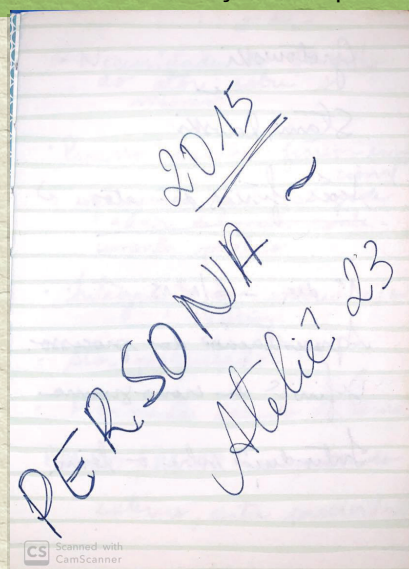 2015
PERSONA ~
Ateliê 23
CS Scanned with
CamScanner